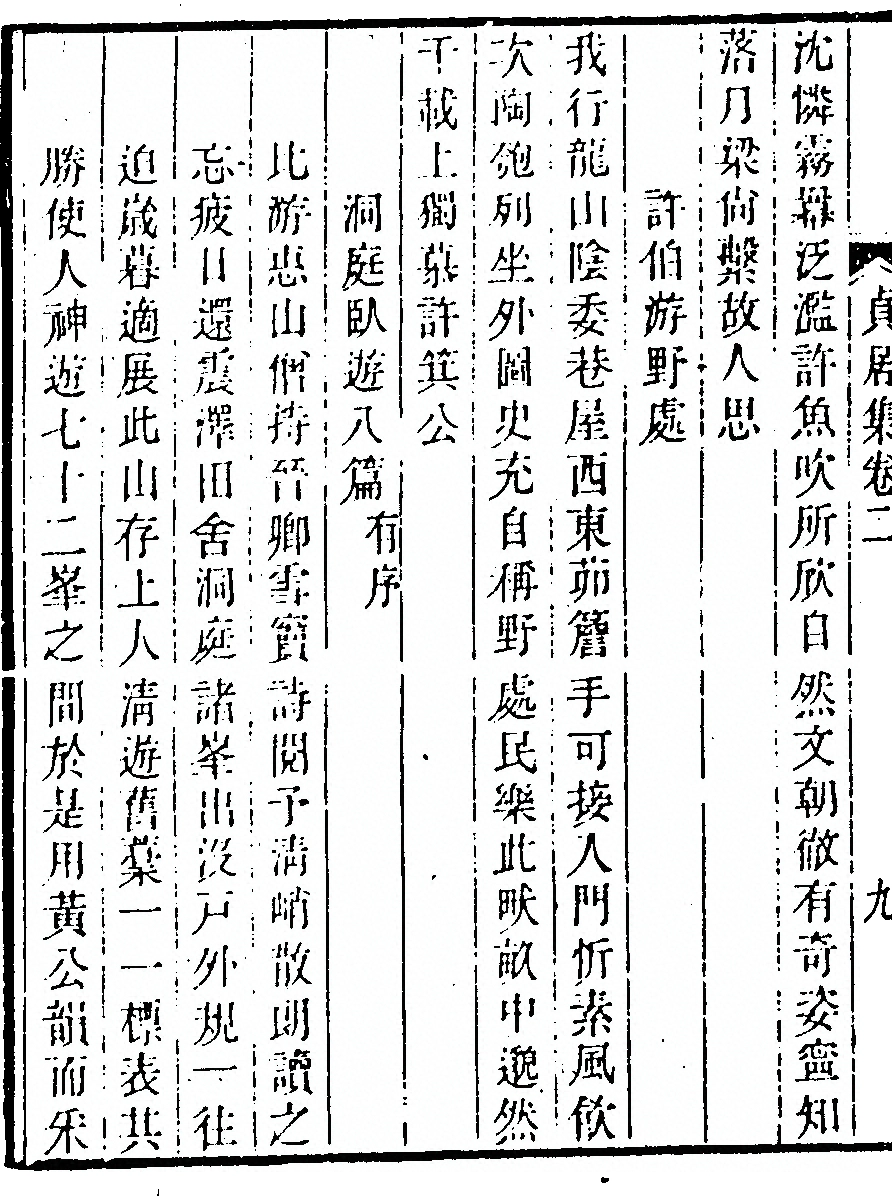 貞居集卷二 九
沈憐霧難泛濫許魚吹所欣自然文朝徹有奇姿寧知
落月梁尙繫故人思
許伯游野處
我行龍山陰委巷屋西東茆簷手可接人門忻素風飲
次陶匏列坐外圖史充自稱野處民樂此畎畝中邈然
千載上獨慕許箕公
洞庭臥遊八篇 有序
比游惠山僧持晉卿雪竇詩閱予淸峭散朗讀之
忘疲日還震澤田舍洞庭諸峯出沒戸外規一往
迫歲暮適展此山存上人淸遊舊藁一一標表其
勝使人神遊七十二峯之間於是用黃公韻而采